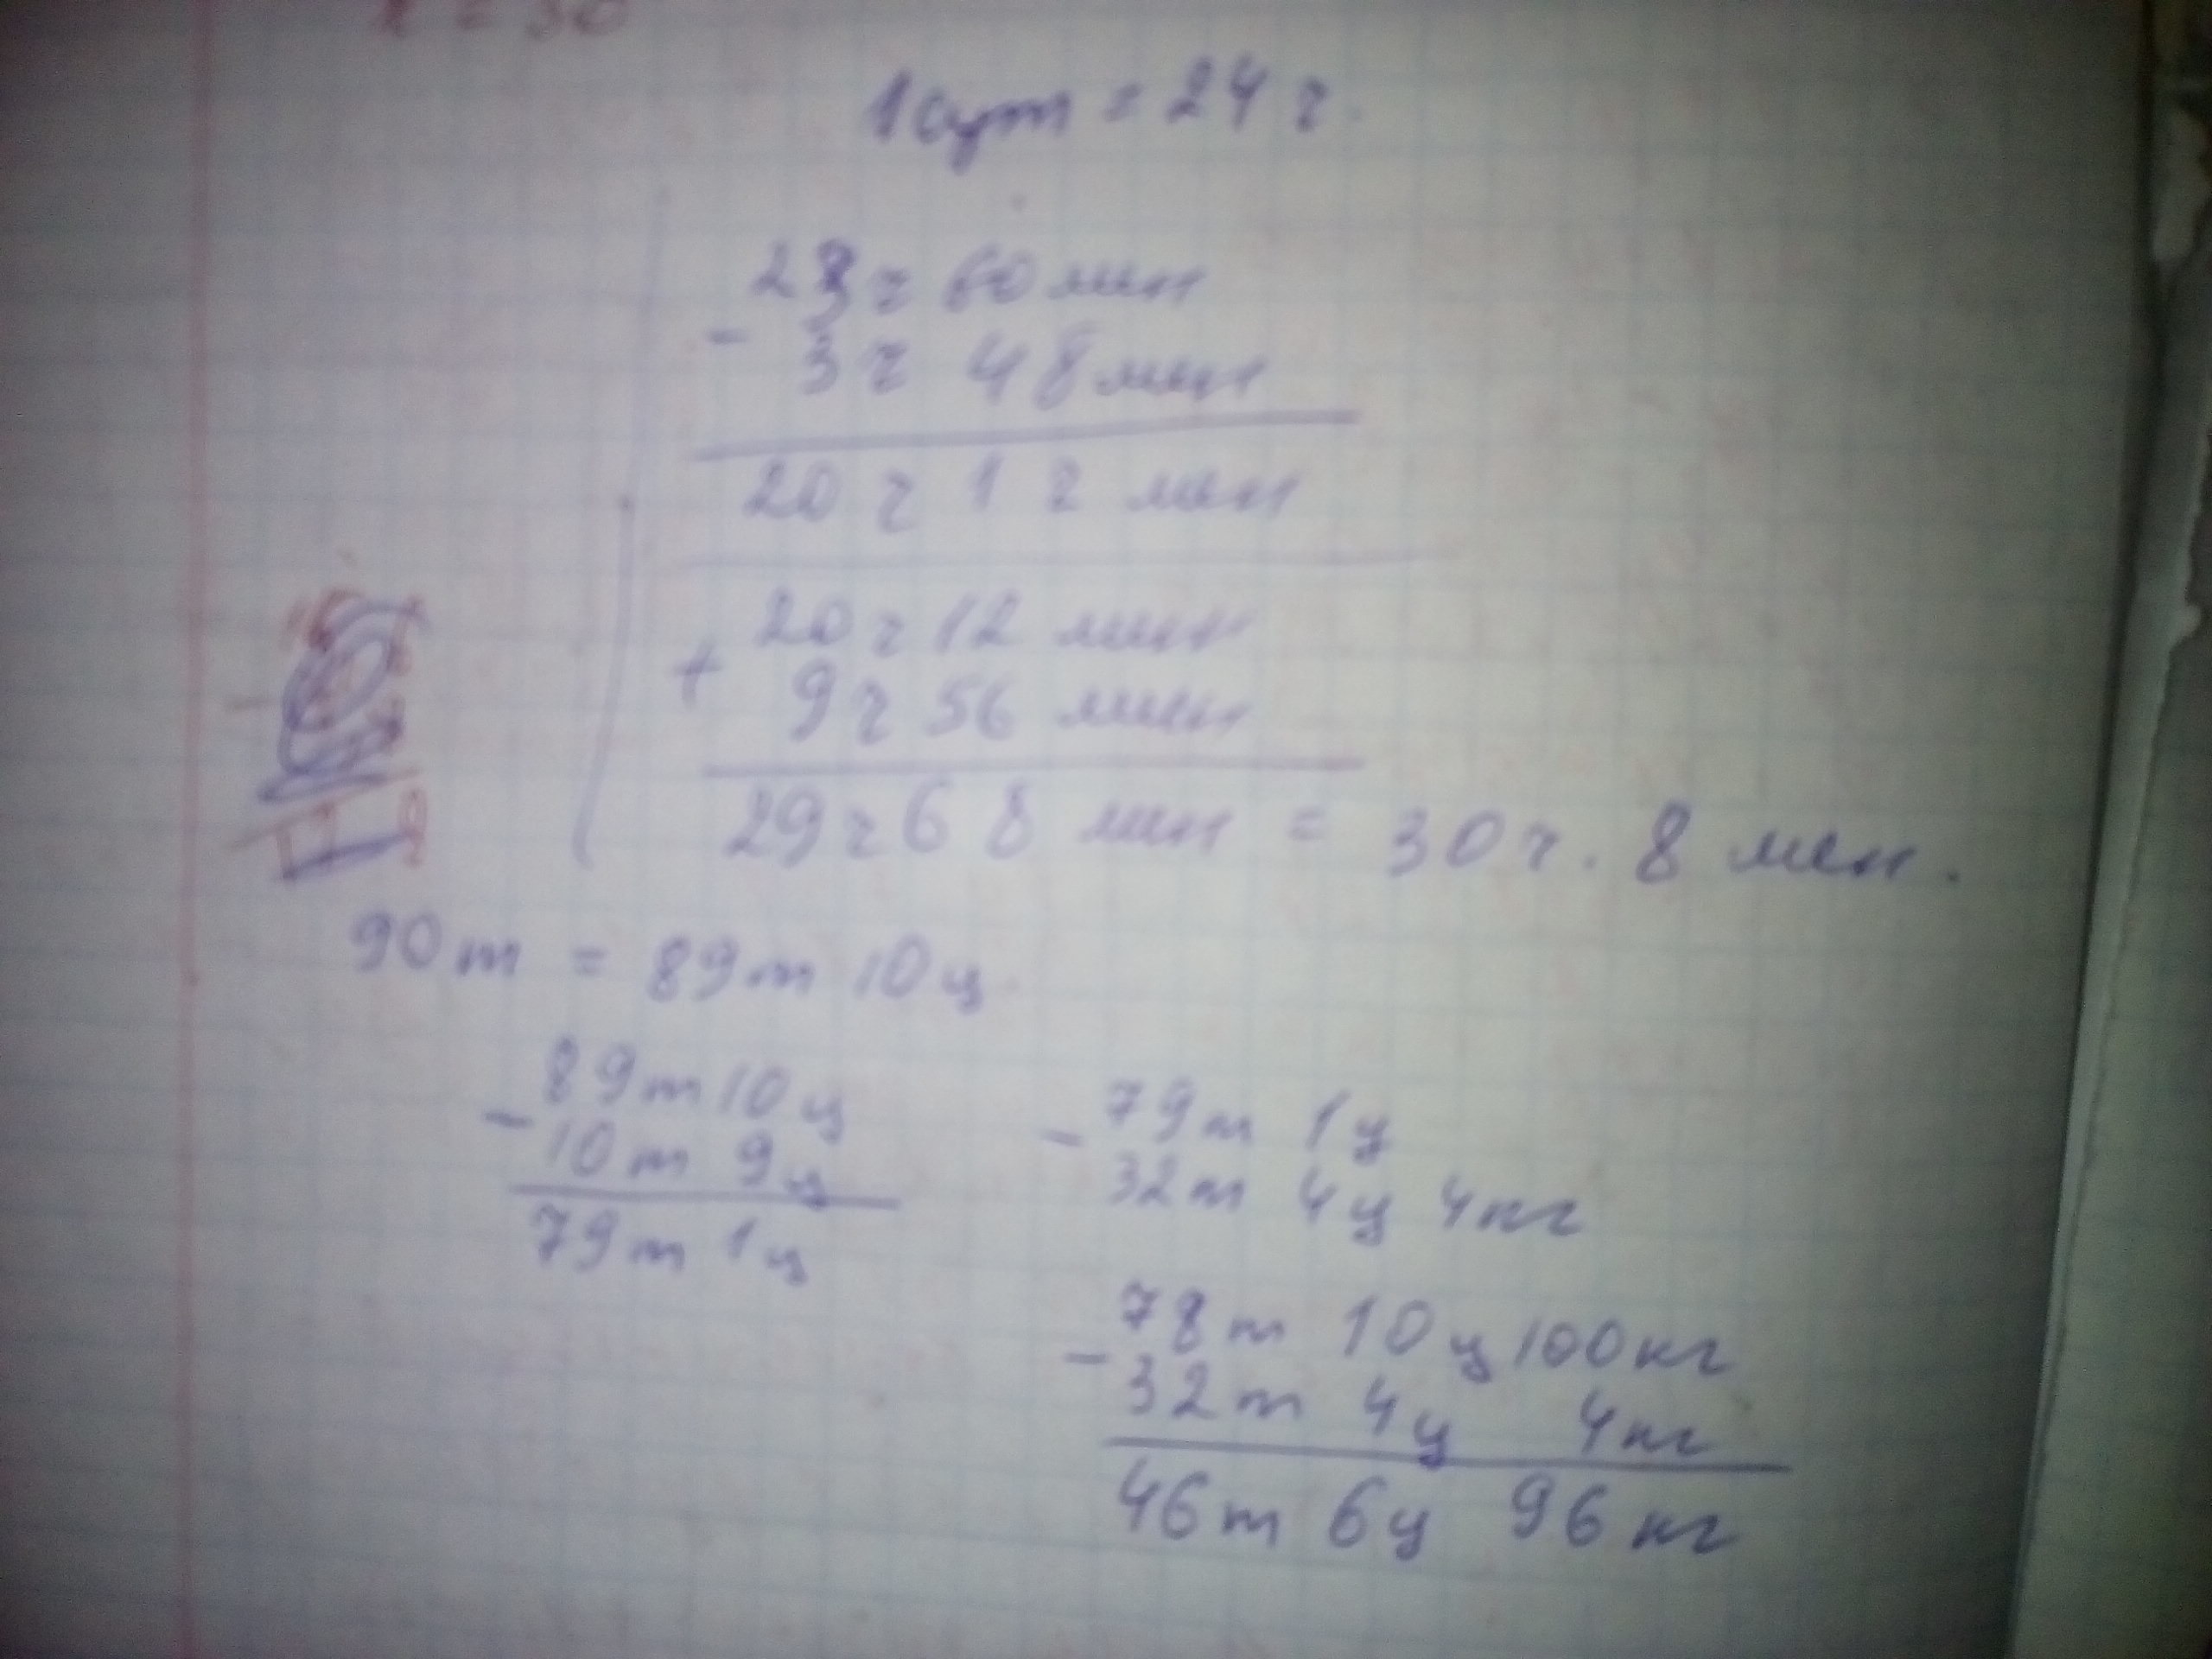 = 30
1 сут = 24 ч.
23 ч 60 мин
- 3 ч 48 мин
20 ч 12 мин
20 ч 12 мин
+ 9 ч 56 мин
29 ч 68 мин = 30 ч. 8 мин.
90 т = 89 т 10 ц
- 89 т 10 ц
10 т 9 ц
79 т 1 ц
- 79 т 1 ц
32 т 4 ц 4 кг
- 78 т 10 ц 100 кг
32 т 4 ц 4 кг
46 т 6 ц 96 кг